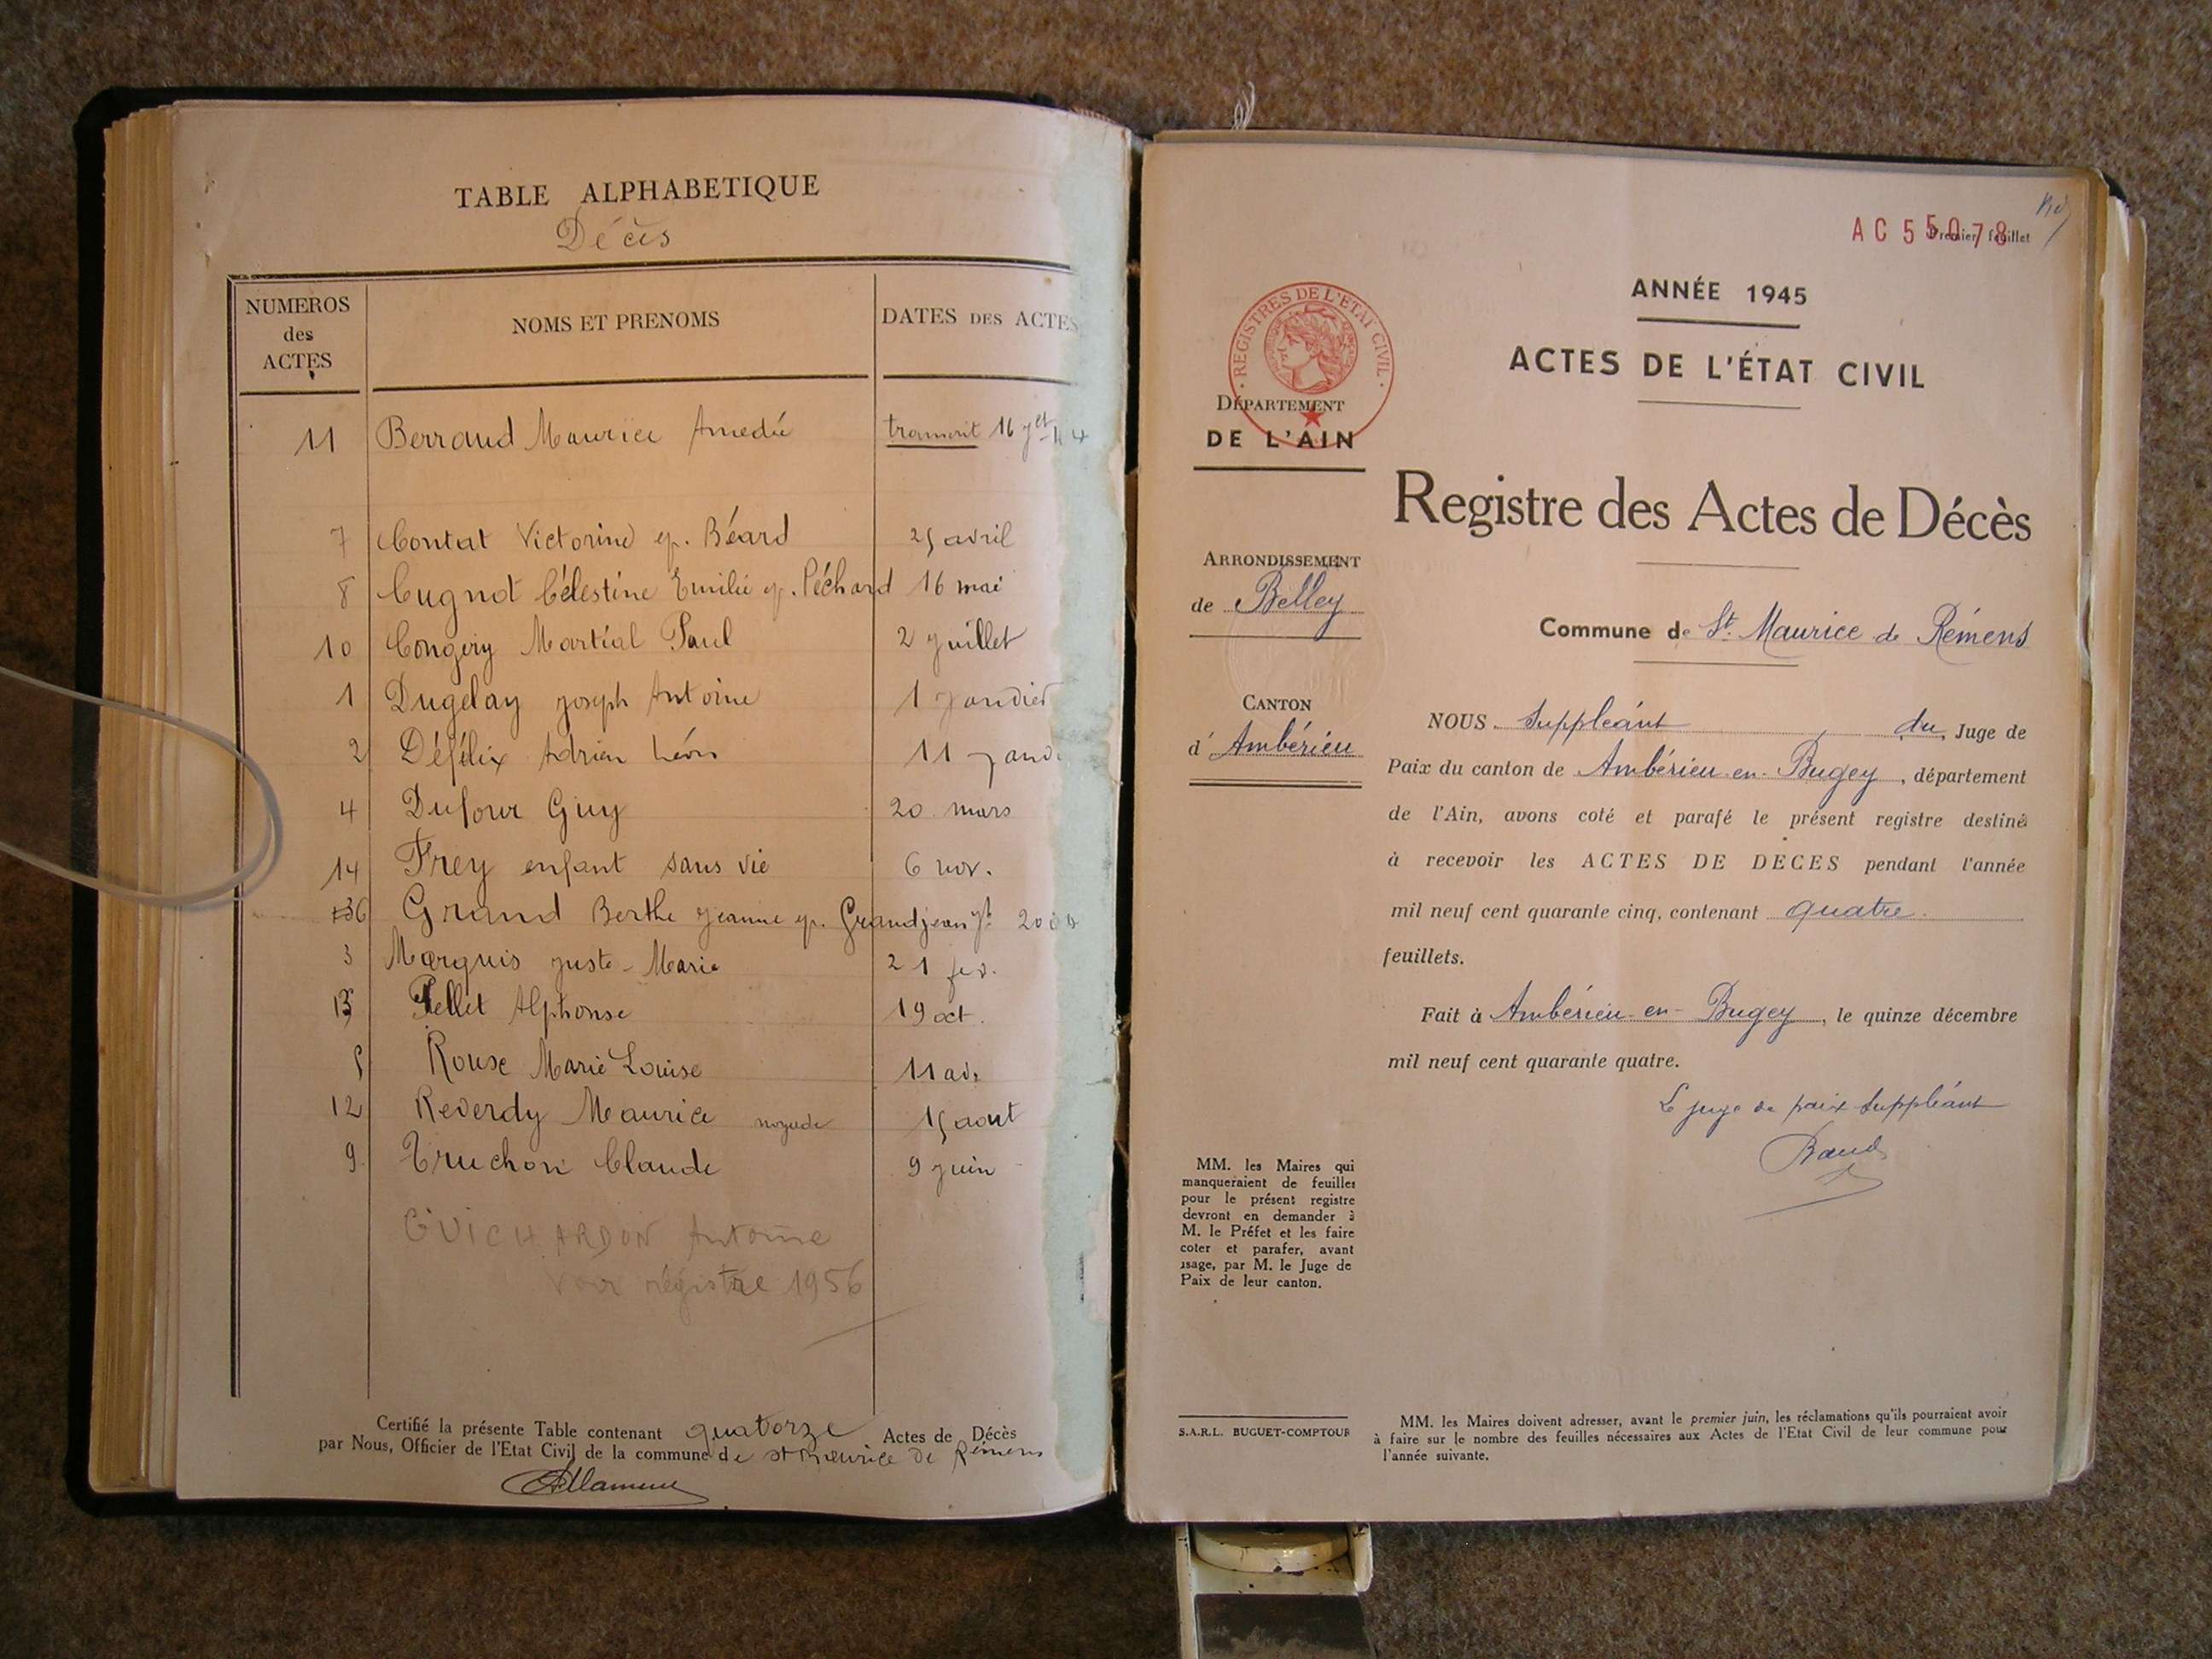 TABLE ALPHABETIQUE
Décès
NUMEROS des ACTES
NOMS ET PRENOMS
DATES DES ACTES
11 Berraud Maurice Amedée transcrit 16
7 Contat Victorine ep. Béard 25 avril
8 Cugnot Célestine Emilie ep. Péchard 16 mai
10 Congery Martial Paul 2 juillet
1 Dugelay Joseph Antoine 1 janvier
2 Défélix Adrien Léon 11 janv
4 Dufour Guy 20 mars
14 Frey enfant sans vie 6 nov.
6 Grand Berthe Jeanne ep. Grandjean
3 Marquis Juste-Marie 21 fev.
13 Pellet Alphonse 19 oct.
5 Rouse Marie Louise 11 av.
12 Reverdy Maurice noyade 15 aout
9 Truchon Claude 9 juin
GUICHARDON Antoine
voir régistre 1956
Certifié la présente Table contenant quatorze Actes de Décès
par Nous, Officier de l'Etat Civil de la commune de St Maurice de Rémens
AC 55078
Premier feuillet
ANNÉE 1945
ACTES DE L'ÉTAT CIVIL
REGISTRES DE L'ETAT CIVIL
DÉPARTEMENT
DE L'AIN
Registre des Actes de Décès
ARRONDISSEMENT
de Belley
Commune de St. Maurice de Rémens
CANTON
d' Ambérieu
NOUS Suppléant du Juge de
Paix du canton de Ambérieu-en-Bugey, département
de l'Ain, avons coté et parafé le présent registre destiné
à recevoir les ACTES DE DECES pendant l'année
mil neuf cent quarante cinq, contenant quatre
feuillets.
Fait à Ambérieu-en-Bugey, le quinze décembre
mil neuf cent quarante quatre.
Le juge de paix Suppléant
MM. les Maires qui
manqueraient de feuilles
pour le présent registre
devront en demander à
M. le Préfet et les faire
coter et parafer, avant
usage, par M. le Juge de
Paix de leur canton.
S.A.R.L. BUGUET-COMPTOUR
MM. les Maires doivent adresser, avant le premier juin, les réclamations qu'ils pourraient avoir
à faire sur le nombre des feuilles nécessaires aux Actes de l'Etat Civil de leur commune pour
l'année suivante.